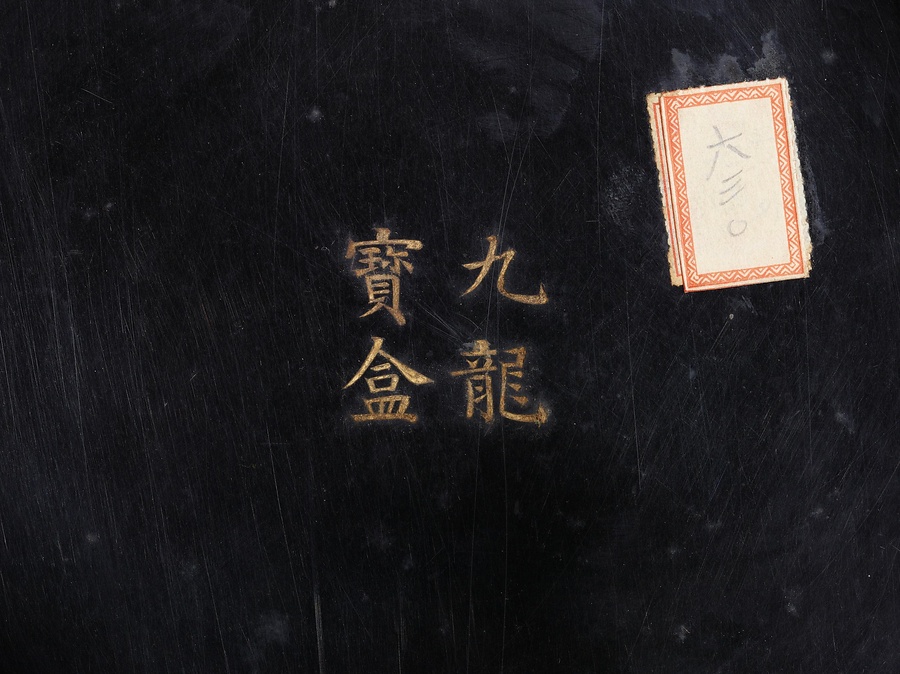 九龍
寶盒
六三〇